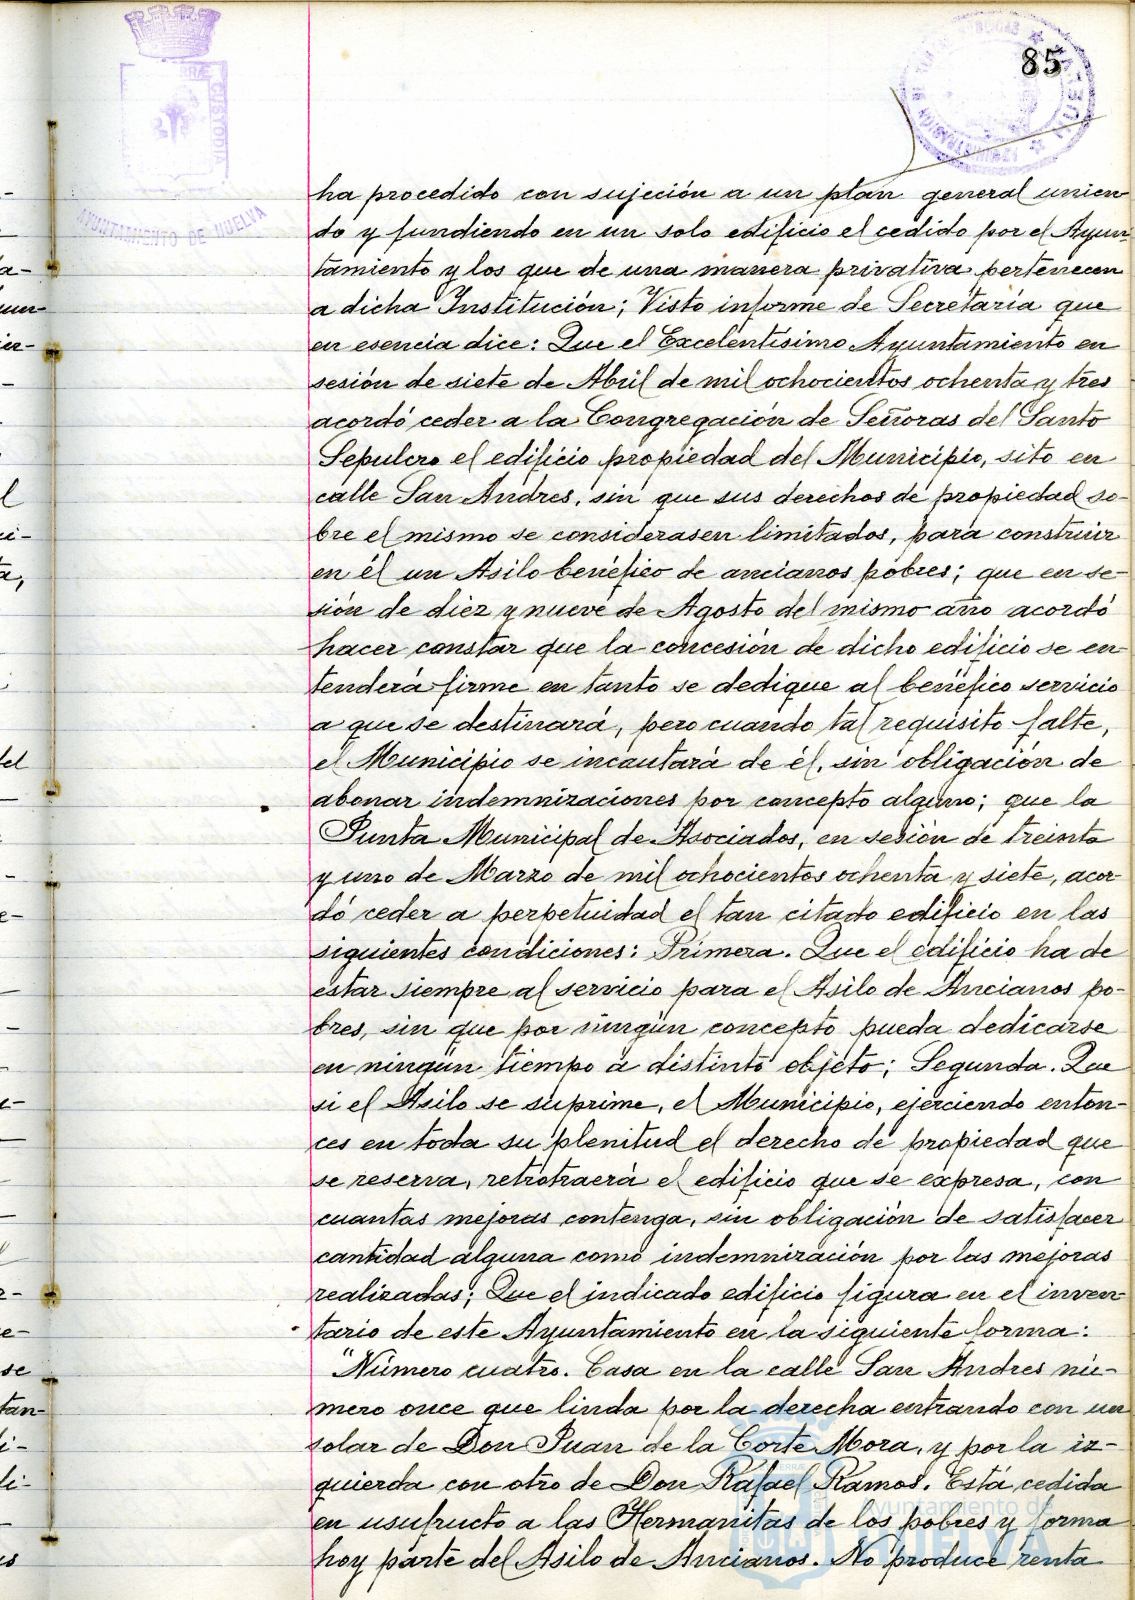 85
AYUNTAMIENTO DE HUELVA
ha procedido con sujeción a un plan general unien-
do y fundiendo en un solo edificio el cedido por el Ayun-
tamiento y los que de una manera privativa pertenecen
a dicha Institución; Visto informe de Secretaría que
en esencia dice: Que el Excelentísimo Ayuntamiento en
sesión de siete de Abril de mil ochocientos ochenta y tres
acordó ceder a la Congregación de Señoras del Santo
Sepulcro el edificio propiedad del Municipio, sito en
calle San Andres, sin que sus derechos de propiedad so-
bre el mismo se considerasen limitados, para construir
en él un Asilo benéfico de ancianos pobres; que en se-
sión de diez y nueve de Agosto del mismo año acordó
hacer constar que la concesión de dicho edificio se en-
tenderá firme en tanto se dedique al benéfico servicio
a que se destinará, pero cuando tal requisito falte,
el Municipio se incautará de él, sin obligación de
abonar indemnizaciones por concepto alguno; que la
Junta Municipal de Asociados, en sesión de treinta
y uno de Marzo de mil ochocientos ochenta y siete, acor-
dó ceder a perpetuidad el tan citado edificio en las
siguientes condiciones: Primera. Que el edificio ha de
estar siempre al servicio para el Asilo de Ancianos po-
bres, sin que por ningún concepto pueda dedicarse
en ningún tiempo a distinto objeto; Segunda. Que
si el Asilo se suprime, el Municipio, ejerciendo enton-
ces en toda su plenitud el derecho de propiedad que
se reserva, retrotraerá el edificio que se expresa, con
cuantas mejoras contenga, sin obligación de satisfacer
cantidad alguna como indemnización por las mejoras
realizadas; Que el indicado edificio figura en el inven-
tario de este Ayuntamiento en la siguiente forma:
"Número cuatro. Casa en la calle San Andres nú-
mero once que linda por la derecha entrando con un
solar de Don Juan de la Corte Mora, y por la iz-
quierda con otro de Don Rafael Ramos. Está cedida
en usufructo a las Hermanitas de los pobres y forma
hoy parte del Asilo de Ancianos. No produce renta
Ayuntamiento de
HUELVA